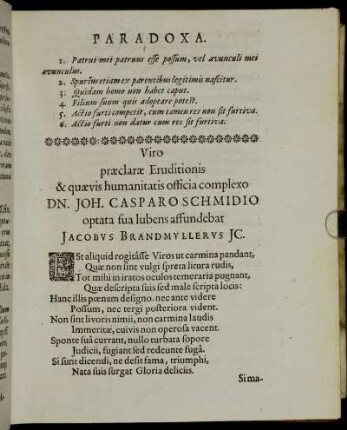 PARADOXA.
1. Patrui mei patruus esse possum, vel avunculi mei
avunculus.
2. Spurius etiam ex parentibus legitimis nascitur.
3. Quidam homo non habet caput.
4. Filium suum quis adoptare potest.
5. Actio furti competit, cum tamen res non sit furtiva.
6. Actio furti non datur cum res sit furtiva.
Viro
præclaræ Eruditionis
& quævis humanitatis officia complexo
DN. JOH. CASPARO SCHMIDIO
optata sua lubens affundebat
JACOBVS BRANDMYLLERVS JC.
ESt aliquid rogitasse Viros ut carmina pandant,
Quæ non sint vulgi spreta litura rudis,
Tot mihi in iratos oculos temeraria pugnant,
Quæ descripta suis sed male scripta locis:
Hanc illis pœnam designo. nec ante videre
Possum, nec tergi posteriora vident.
Non sint livoris nimii, non carmina laudis
Immeritæ, cuivis non operosa vacent.
Sponte suâ currant, nullo turbata sopore
Judicii, fugiant sed redeunte fugâ.
Si sunt dicendi, ne desit fama, triumphi,
Nata suis surgat Gloria deliciis.
Sima-